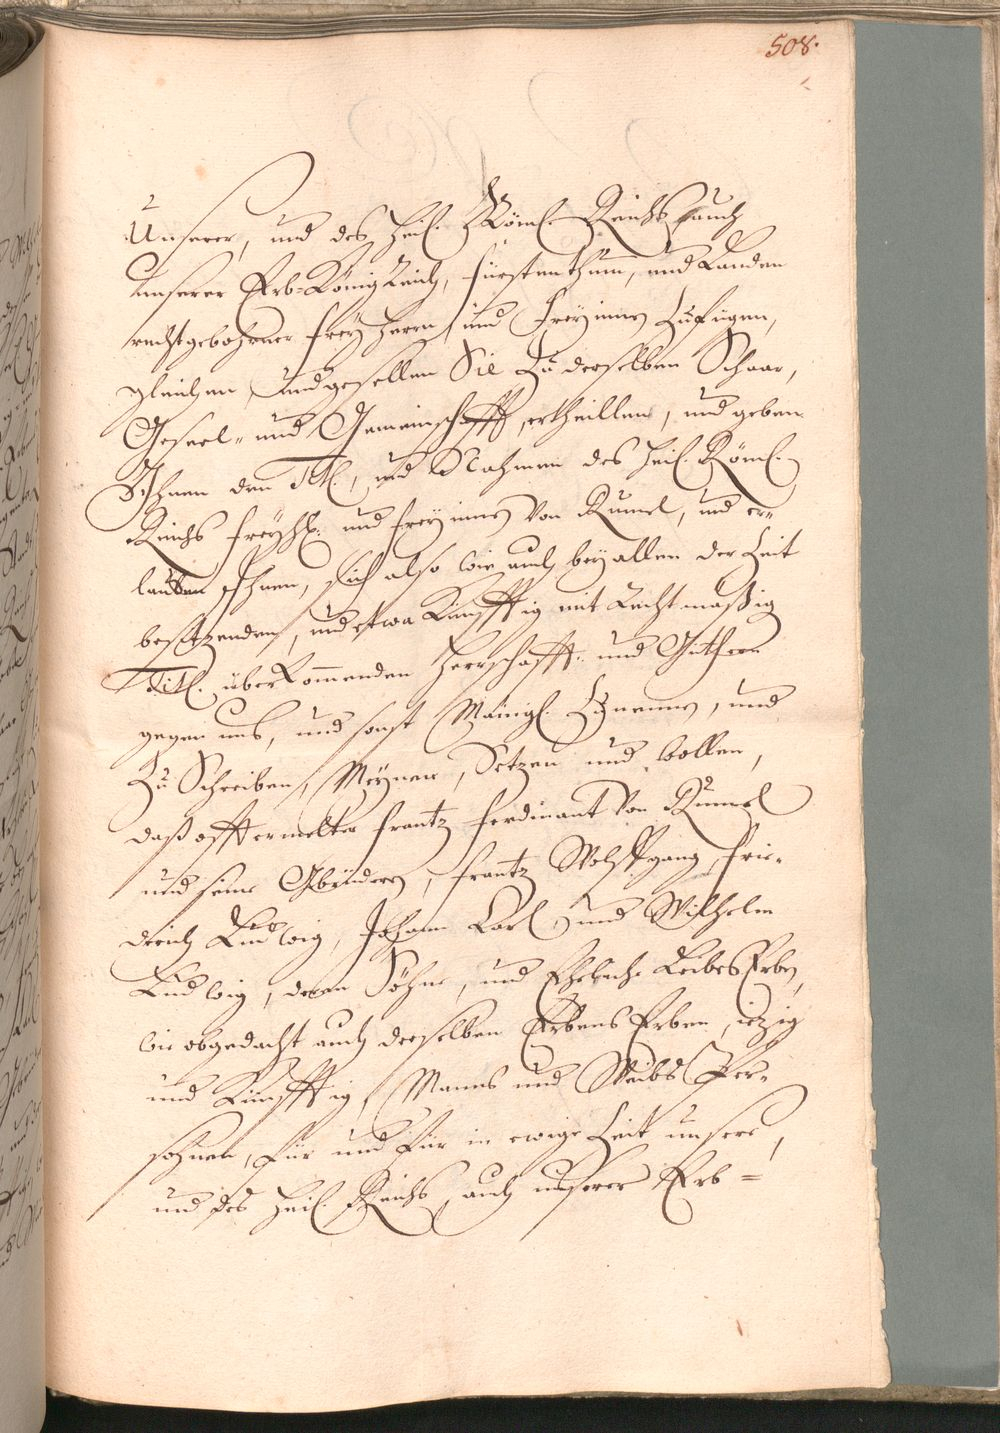 508.
Unserer, und des Heil. Röml. Reichs, auch
unserer Erb-Königreich, Fürstenthum, und Landen
rechtgebohrner Freyherrn, und Freyinnen zufügen,
gleichen, und gesellen Sie zu derselben Schaar,
Gesell- und Gemeinschafft, ertheillen, und geben
Ihnen den Titl., und Nahmen des Heil. Röml.
Reichs Freyh: und Freyinnen von Rumel, und er-
lauben Ihnen, sich also wie auch bey allen der Zeit
besitzenden, und etwa Künfftig mit Rechtmaßig
Titl. überkommenden Herrschafft- und Güthern
gegen uns, und sonst Mänigl. zu nennen, und
zu Schreiben, Meynen, Setzen und wollen,
daß offtermelter Frantz Ferdinant von Rumel
und seine Gbrüdere, Frantz Wolffgang, Frie-
derich Ludwig, Johann Carl, und Wilhelm
Ludwig, deren Söhne, und Eheliche Leibes Erben,
wie obgedacht auch derselben Erbens Erben, ietzig
und Künfftig, Manns und Weibs Per-
sohnen, für und für in ewige Zeit unsere,
und des Heil. Reichs, auch unserer Erb-